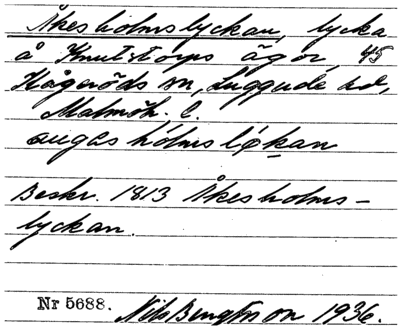 Åkesholmslyckan, lycka
å Knutstorps ägor, 45
Kågeröds sn, Luggude hd,
Malmöh. l.
Beskr. 1813 Åkesholms-
lyckan.
Nr 5688. Nils Bengtsson 1936.